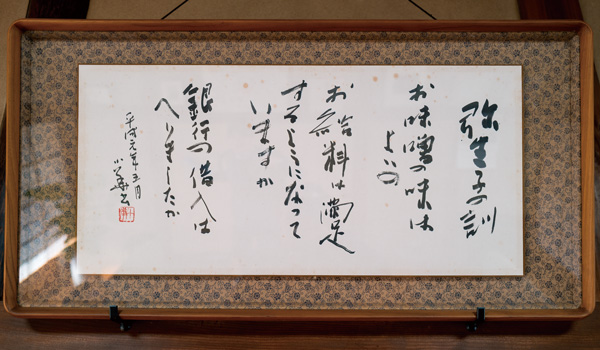 弥生子の訓
お味噌の味は
よいの
お給料は満足
するようになって
いますか
銀行の借入は
へりましたか
平成元年五月